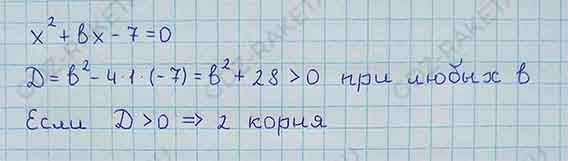 x² + bx - 7 = 0
D = b² - 4·1·(-7) = b² + 28 > 0 при любых b
Если D > 0 => 2 корня